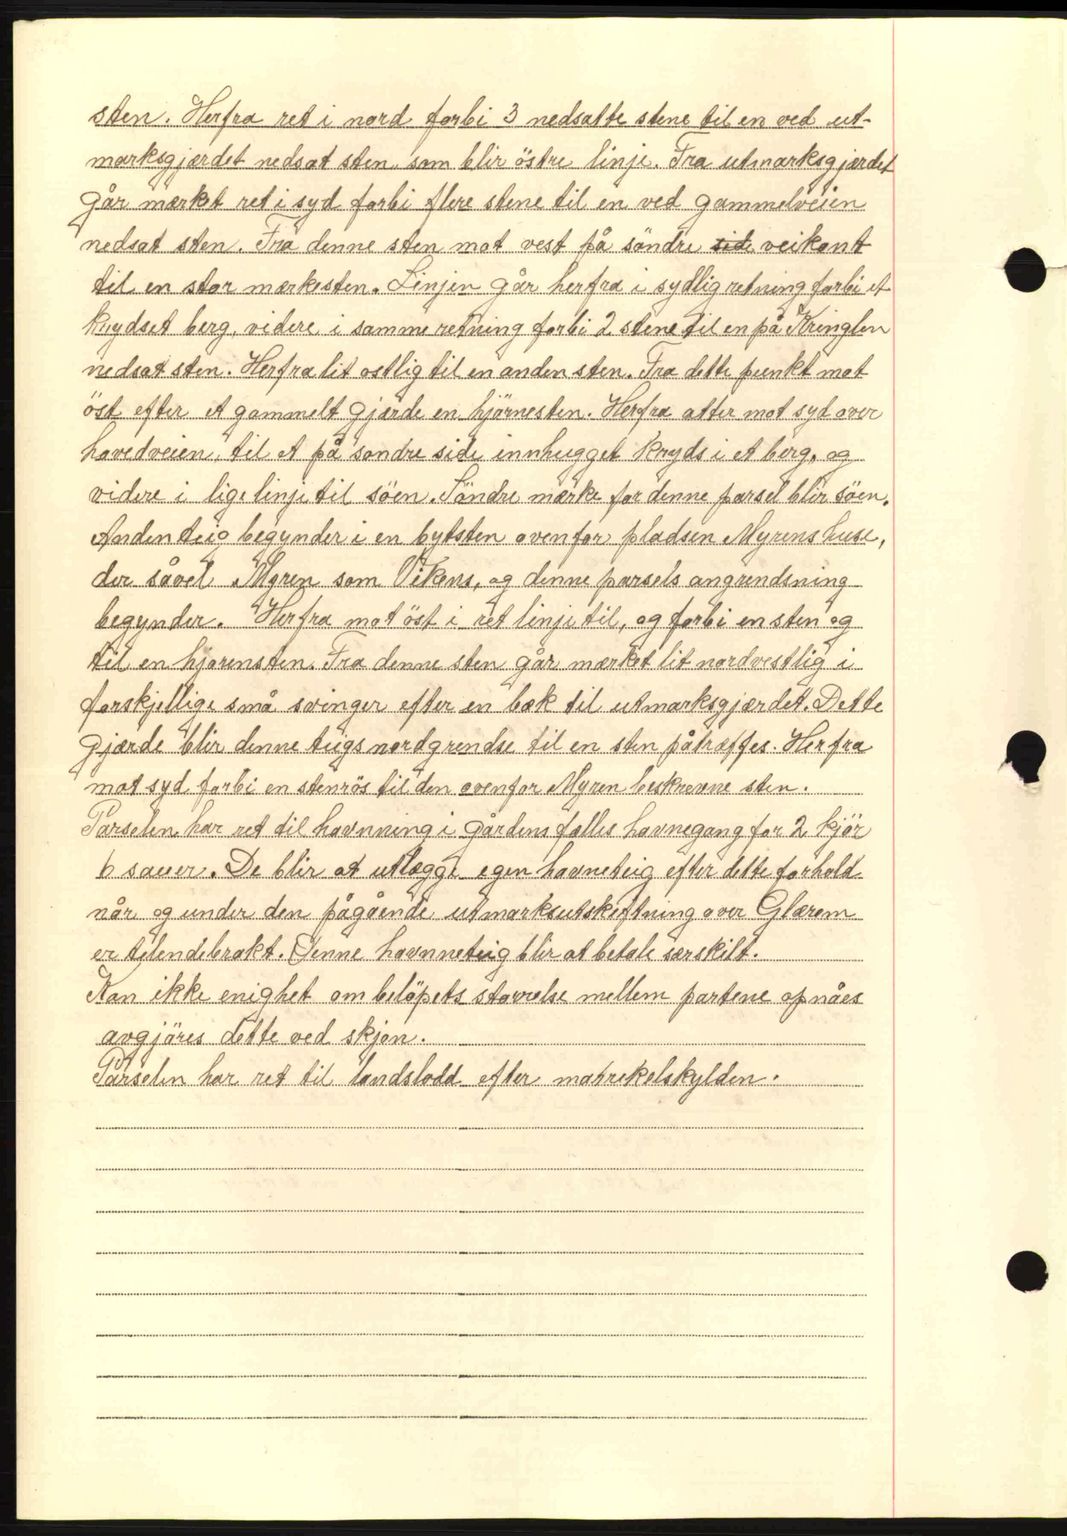 sten. Herfra ret i nord forbi 3 nedsatte stene til en ved ut-
marksgjærdet nedsat sten som blir östre linje. Fra utmarksgjærdet
går mærket ret i syd forbi flere stene til en ved gammelveien
nedsat sten. Fra denne sten mot vest på söndre side veikant
til en stor mærkesten. Linjen går herfra i sydlig retning forbi et
krydset berg, videre i samme retning forbi 2 stene til en på Kringlen
nedsat sten. Herfra lit ostlig til en anden sten. Fra dette punkt mot
öst efter et gammelt gjærde en hjörnesten. Herfra atter mot syd over
hovedveien, til et på söndre side innhugget kryds i et berg, og
videre i lige linje til söen. Söndre mærke for denne parsel blir söen.
Anden teig begynder i en bytsten ovenfor pladsen Myrens huse,
der såvel Myren som Vikens, og denne parsels angrendsning
begynder. Herfra mot öst i ret linje til, og forbi en sten og
til en hjørensten. Fra denne sten går mærket lit nordvestlig i
forskjellige små svinger efter en bæk til utmarksgjærdet. Dette
gjærde blir denne teigs nordgrendse til en sten påtræffes. Herfra
mot syd forbi en stenrös til den ovenfor Myren beskrevne sten.
Parselen har ret til havnning i gårdens fælles havnegang for 2 kjör
6 sauer. De blir at utlægge egen havneteig efter dette forhold
når og under den pågående utmarksutskiftning over Glærem
er tilendebrakt. Denne havnneteig blir at betale særskilt.
Kan ikke enighet om belöpets størrelse mellem partene opnåes
avgjöres dette ved skjøn.
Parselen har ret til landslodd efter matrekelskylden.